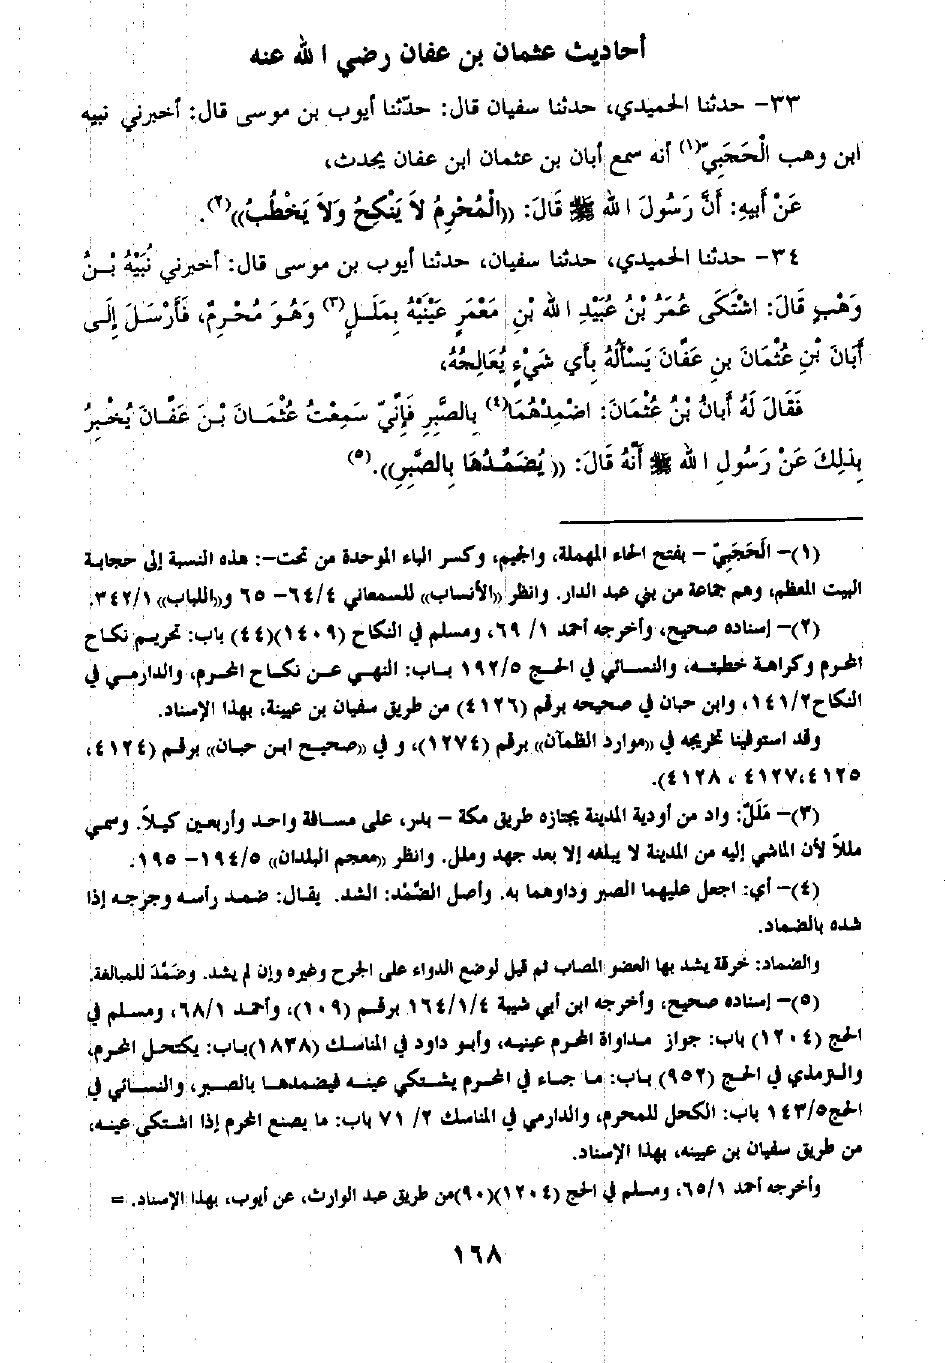 أحاديث عثمان بن عفان رضي الله عنه
٣٣- حدثنا الحميدي، حدثنا سفيان قال: حدّثنا أيوب بن موسى قال: أخبرني نبيه
ابن وهب الْحَجَبِيّ(١) أنه سمع أبان بن عثمان ابن عفان يحدث،
عَنْ أَبِيهِ: أَنَّ رَسُولَ الله ﷺ قَالَ: ((الْمُحْرِمُ لاَ يَنْكِحُ وَلاَ يَخْطُبُ))(٢).
٣٤- حدثنا الحميدي، حدثنا سفيان، حدثنا أيوب بن موسى قال: أخبرني نُبَيْهُ بْنُ
وَهْبٍ قَالَ: اشْتَكَى عُمَرُ بْنُ عُبَيْدِ الله بْنِ مَعْمَرٍ عَيْنَيْهِ بِمَلَلٍ(٣) وَهُوَ مُحْرِمٌ، فَأَرْسَلَ إِلَى
أَبَانَ بْنِ عُثْمَانَ بنِ عَفَّانَ يَسْأَلُهُ بِأَي شَيْءٍ يُعَالِجُهُ،
فَقَالَ لَهُ أَبانُ بْنُ عُثْمَانَ: اضْمِدْهُمَا(٤) بِالصَّبِرِ فَإِنِّيّ سَمِعْتُ عُثْمَانَ بْنَ عَفَّانَ يُخْبِرُ
بِذلِكَ عَنْ رَسُولِ الله ﷺ أَنَّهُ قَالَ: (( يُضَمِّدُهَا بِالصَّبِرِ)).(٥)
(١)- الَحَجَبِيّ - بفتح الحاء المهملة، والجيم، وكسر الباء الموحدة من تحت-: هذه النسبة إلى حجابة
البيت المعظم، وهم جماعة من بني عبد الدار. وانظر ((الأنساب)) للسمعاني ٦٤/٤- ٦٥ و((اللباب)) ٣٤٢/١.
(٢)- إسناده صحيح، وأخرجه أحمد ١/ ٦٩، ومسلم في النكاح (١٤٠٩)(٤٤) باب: تحريم نكاح
المحرم وكراهة خطبته، والنسائي في الحج ١٩٢/٥ باب: النهي عن نكاح المحرم، والدارمي في
النكاح١٤١/٢، وابن حبان في صحيحه برقم (٤١٢٦) من طريق سفيان بن عيينة، بهذا الإسناد.
وقد استوفينا تخريجه في ((موارد الظمآن)) برقم (١٢٧٤)، و في ((صحيح ابن حبان)) برقم (٤١٢٤،
٤١٢٥،٤١٢٧ ، ٤١٢٨).
(٣)- مَلَلٌ: واد من أودية المدينة يجتازه طريق مكة - بدر، على مسافة واحد وأربعين كيلاً. وسمي
مللاً لأن الماشي إليه من المدينة لا يبلغه إلا بعد جهد وملل. وانظر ((معجم البلدان)) ١٩٤/٥- ١٩٥.
(٤)- أي: اجعل عليهما الصبر وداوهما به. وأصل الضَّمْد: الشد. يقال: ضمد رأسه وجرحه إذا
شده بالضماد.
والضماد: خرقة يشد بها العضو المصاب ثم قيل لوضع الدواء على الجرح وغيره وإن لم يشد. وضَمَّدَ للمبالغة.
(٥)- إسناده صحيح، وأخرجه ابن أبي شيبة ١٦٤/١/٤ برقم (١٠٩)، وأحمد ٦٨/١، ومسلم في
الحج (١٢٠٤) باب: جواز مداواة المحرم عينيه، وأبو داود في المناسك (١٨٣٨)باب: يكتحل المحرم،
والترمذي في الحج (٩٥٢) باب: ما جاء في المحرم يشتكي عينه فيضمدها بالصبر، والنسائي في
الحج١٤٣/٥ باب: الكحل للمحرم، والدارمي في المناسك ٢/ ٧١ باب: ما يصنع المحرم إذا اشتكى عينه،
من طريق سفيان بن عيينه، بهذا الإسناد.
وأخرجه أحمد ٦٥/١، ومسلم في الحج (١٢٠٤)(٩٠)من طريق عبد الوارث، عن أيوب، بهذا الإسناد. =
١٦٨